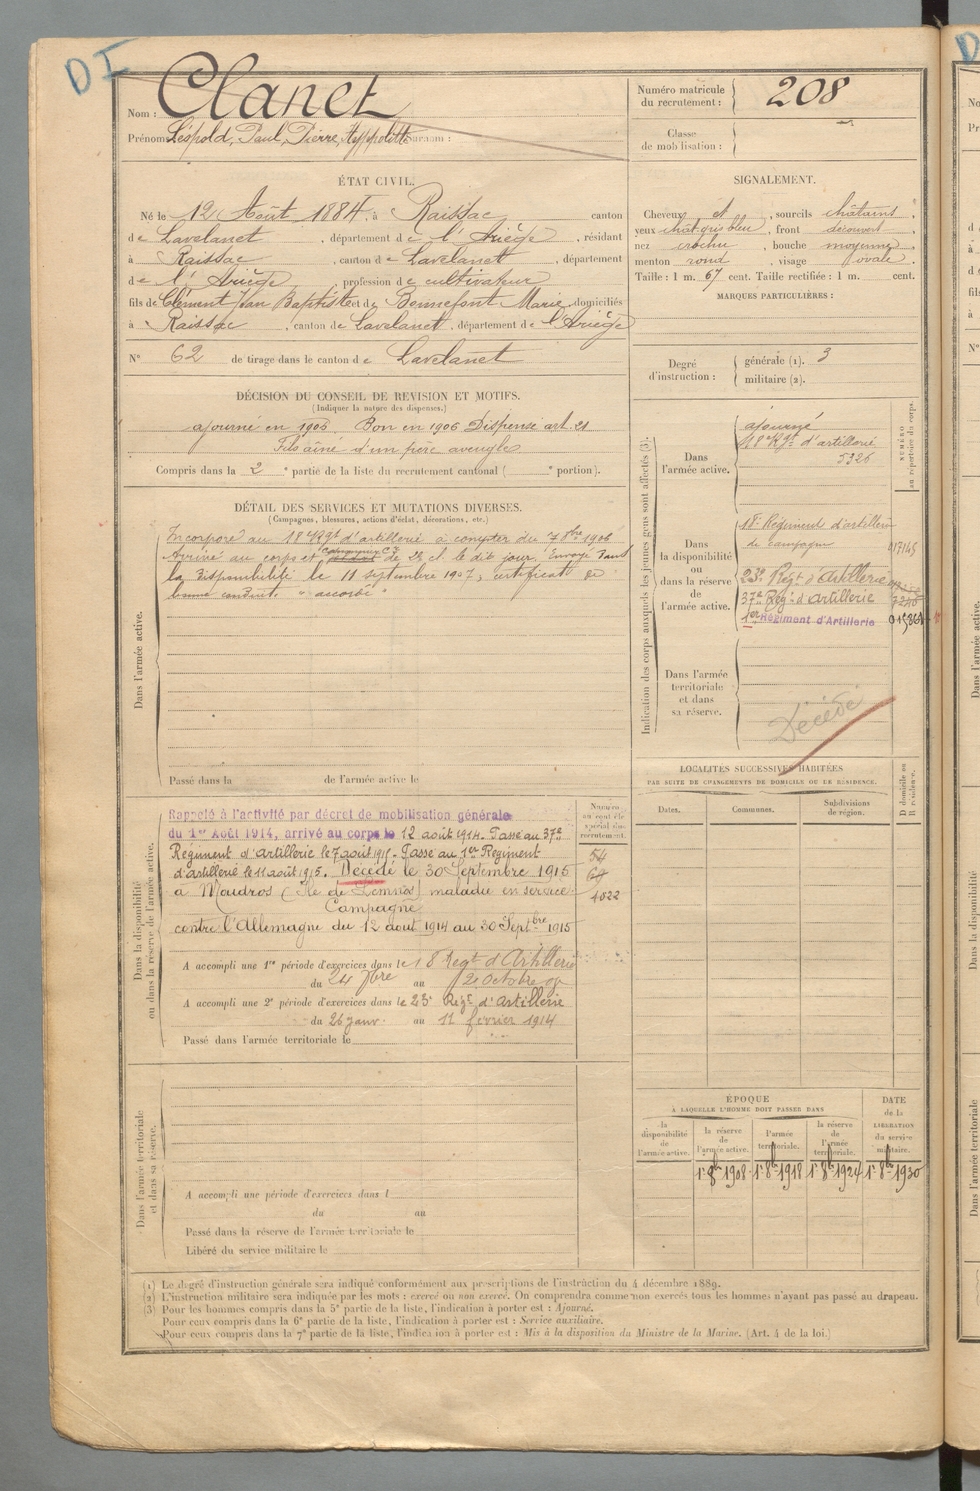 DI
Nom : Clanet
Prénoms : Léopold, Paul, Pierre, Hyppolitte Surnom :
Numéro matricule du recrutement : 208
Classe de mobilisation :
ÉTAT CIVIL.
Né le 12 Août 1884, à Raissac canton
de Lavelanet, département de l'Ariège, résidant
à Raissac, canton de Lavelanet, département
de l'Ariège, profession de cultivateur
fils de Clément Jean Baptiste et de Bonnefont Marie, domiciliés
à Raissac, canton de Lavelanet, département de l'Ariège
N° 62 de tirage dans le canton de Lavelanet
SIGNALEMENT.
Cheveux et, sourcils châtains,
yeux chât. gris bleu, front découvert,
nez crochu, bouche moyenne,
menton rond, visage ovale.
Taille : 1 m. 67 cent. Taille rectifiée : 1 m. cent.
MARQUES PARTICULIÈRES :
Degré d'instruction :
générale (1). 3
militaire (2).
DÉCISION DU CONSEIL DE REVISION ET MOTIFS.
(Indiquer la nature des dispenses.)
ajourné en 1905. Bon en 1906 Dispensé art. 21
Fils aîné d'un père aveugle
Compris dans la 2e partie de la liste du recrutement cantonal ( e portion).
DÉTAIL DES SERVICES ET MUTATIONS DIVERSES.
(Campagnes, blessures, actions d'éclat, décorations, etc.)
Dans l'armée active.
Incorporé au 18e Rgt d'artillerie à compter du 7 8bre 1906
Arrivé au corps et de 2e cl. le dit jour. Envoyé dans
la disponibilité le 11 septembre 1907; certificat de
bonne conduite "accordé"
Passé dans la de l'armée active le
Indication des corps auxquels les jeunes gens sont affectés (3).
NUMÉRO au répertoire du corps.
Dans l'armée active.
ajourné
18e Rgt d'artillerie
5326
Dans la disponibilité ou dans la réserve de l'armée active.
18e Régiment d'artillerie
de campagne 017145
23e Régt d'Artillerie
37e Régt d'Artillerie
1er Régiment d'Artillerie
Dans l'armée territoriale et dans sa réserve.
Décédé
LOCALITÉS SUCCESSIVES HABITÉES
PAR SUITE DE CHANGEMENTS DE DOMICILE OU DE RÉSIDENCE.
Dates. Communes. Subdivisions de région.
D domicile ou R résidence.
Dans la disponibilité ou dans la réserve de l'armée active.
Numéro au contrôle spécial du recrutement.
Rappelé à l'activité par décret de mobilisation générale
du 1er Août 1914, arrivé au corps le 12 août 1914. Passé au 37e
Régiment d'Artillerie le 7 août 1915. Passé au 1er Régiment
d'artillerie le 11 août 1915. Décédé le 30 Septembre 1915
à Moudros (Ile de Lemnos) maladie en service.
Campagne
contre l'Allemagne du 12 aout 1914 au 30 Septbre 1915
54
64
4022
A accompli une 1re période d'exercices dans le 18 Regt d'Artillerie
du 24 7bre au 2 Octobre 09
A accompli une 2e période d'exercices dans le 23e Régt d'Artillerie
du 26 janv. au 11 février 1914
Passé dans l'armée territoriale le
Dans l'armée territoriale et dans sa réserve.
A accompli une période d'exercices dans l
du au
Passé dans la réserve de l'armée territoriale le
Libéré du service militaire le
ÉPOQUE
À LAQUELLE L'HOMME DOIT PASSER DANS
la disponibilité de l'armée active.
la réserve de l'armée active.
l'armée territoriale.
la réserve de l'armée territoriale.
DATE de la LIBÉRATION du service militaire.
1er 8bre 1908 1er 8bre 1918 1er 8bre 1924 1er 8bre 1930
(1) Le degré d'instruction générale sera indiqué conformément aux prescriptions de l'instruction du 4 décembre 1889.
(2) L'instruction militaire sera indiquée par les mots : exercé ou non exercé. On comprendra comme non exercés tous les hommes n'ayant pas passé au drapeau.
(3) Pour les hommes compris dans la 5e partie de la liste, l'indication à porter est : Ajourné.
Pour ceux compris dans la 6e partie de la liste, l'indication à porter est : Service auxiliaire.
Pour ceux compris dans la 7e partie de la liste, l'indication à porter est : Mis à la disposition du Ministre de la Marine. (Art. 4 de la loi.)